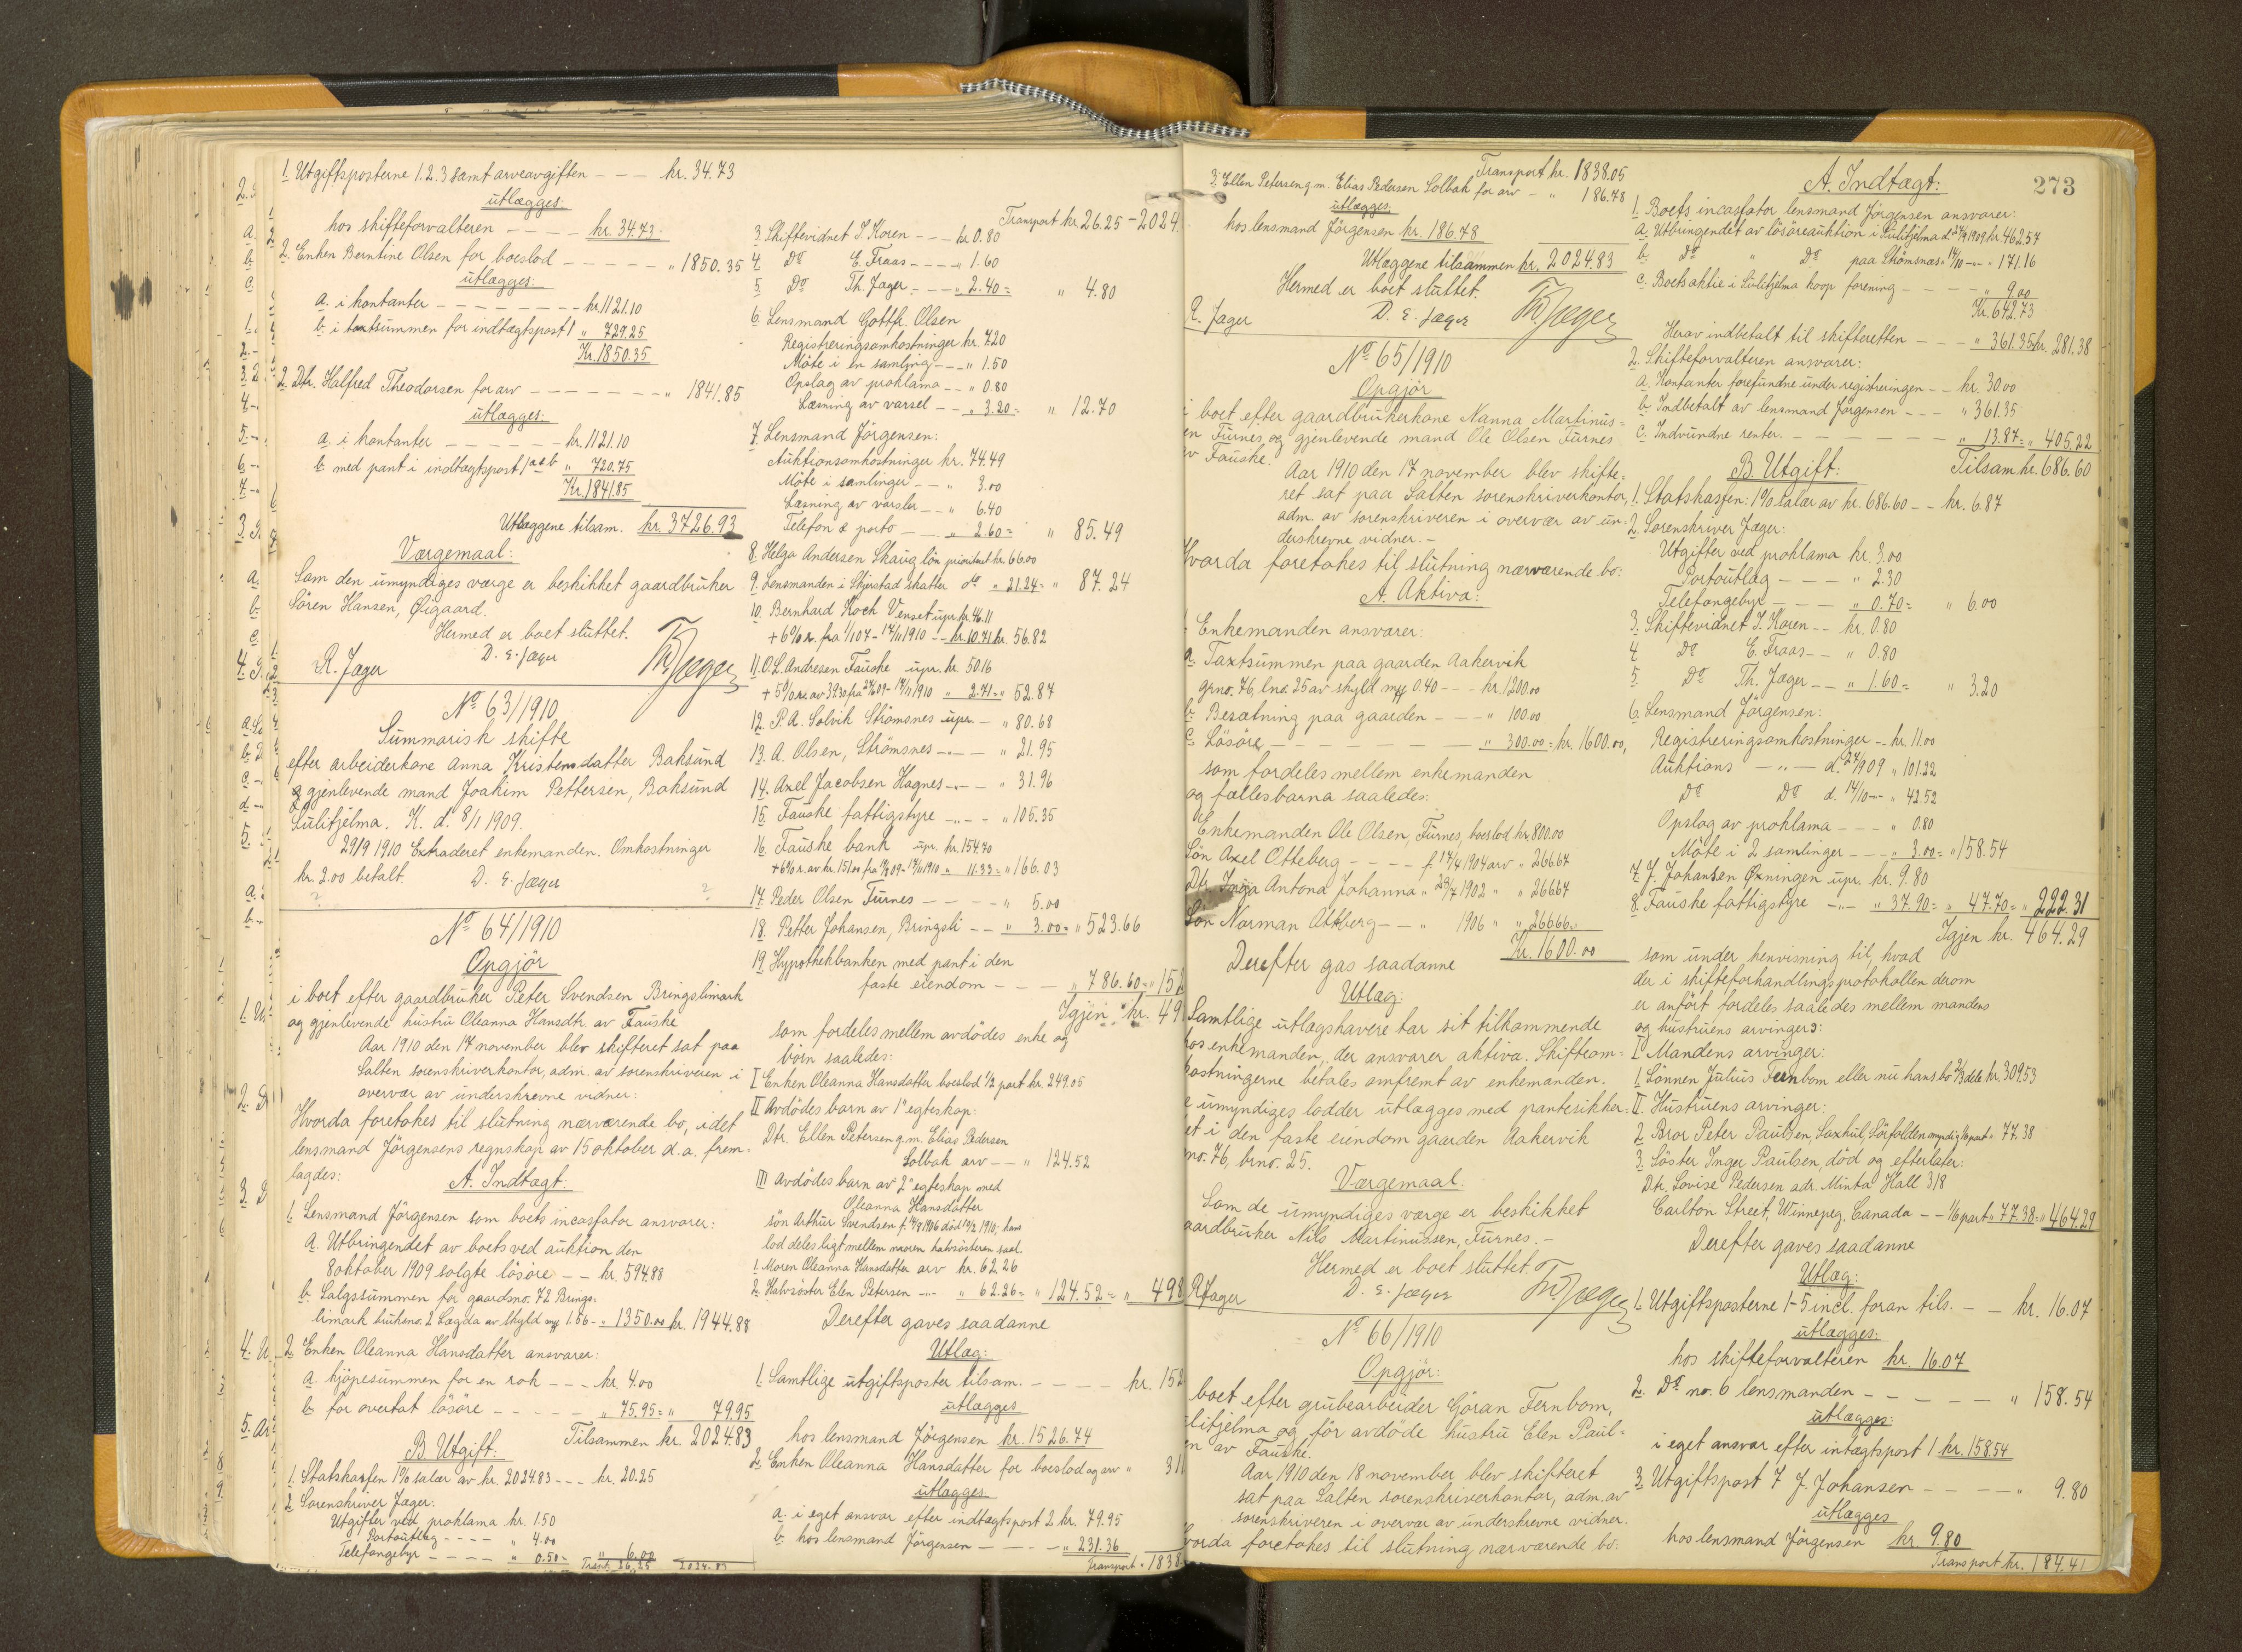 1. Utgiftsposterne 1.2.3 samt arveavgiften - - - kr. 34.73
utlægges:
hos skifteforvalteren - - - - kr. 34.73.
2. Enken Berntine Olsen for boeslod - - - - - " 1850.35
utlægges:
a. i kontanter - - - - - - - - kr. 1121.10
b. i taxtsummen for indtægtspost 1 " 729.25
Kr. 1850.35
2. Dtr. Halfred Theodorsen for arv - - - - - - - " 1841.85
utlægges:
a. i kontanter - - - - - - kr. 1121.10
b. med pant i indtægtspost 1 a & b " 720.75
Kr. 1841.85
Utlæggene tilsam. kr. 3726.93
Værgemaal:
Som den umyndiges værge er beskikket gaardbruker
Sören Hansen, Øigaard.
Hermed er boet sluttet.
R. Jæger D. E. Jæger Th. Jæger
No 63/1910
Summarisk skifte
efter arbeiderkone Anna Kristensdatter Baksund
og gjenlevende mand Joakim Pettersen, Baksund
Sulitjelma. K. d. 8/1 1909.
29/9 1910 Extraderet enkemanden. Omkostninger
kr. 2.00 betalt. D. E. Jæger
No 64/1910
Opgjör
i boet efter gaardbruker Peter Svendsen Bringslimark
og gjenlevende hustru Oleanna Hansdtr. av Fauske
Aar 1910 den 17 november blev skifteret sat paa
Salten sorenskriverkontor, adm. av sorenskriveren i
overvær av underskrevne vidner:
Hvorda foretokes til slutning nærværende bo, idet
lensmand Jörgensens regnskap av 15 oktober d.a. frem-
lagdes:
A. Indtægt:
1. Lensmand Jörgensen som boets incassator ansvarer:
a. Utbringendet av boets ved auktion den
8 oktober 1909 solgte lösöre - - kr. 594.88
b. Salgssummen for gaardsno. 72 Brings-
limark bruksno. 2 Lagda av skyld my 1.56 - " 1350.00 kr. 1944.88
2. Enken Oleanna Hansdatter ansvarer:
a. kjöpesummen for en rok - - - kr. 4.00
b. for overtat lösöre - - - - - " 75.95 = " 79.95
Tilsammen kr. 2024.83
B. Utgift:
1. Statskassen 1% salær av kr. 2024.83 - - - kr. 20.25
2. Sorenskriver Jæger:
Utgifter ved proklama kr. 1.50
Portoutlæg - - - - " 4.00
Telefongebyr - - - - " 0.50 = " 6.00
Transp. 26.25 2024.83
Transport kr. 26.25 - 2024.
3. Skiftevidnet J. Koren - - - kr. 0.80
4. Do E. Fraas - - - - " 1.60
5. Do Th. Jæger - - - " 2.40 = " 4.80
6. Lensmand Gottfr. Olsen
Registreringsomkostninger kr. 7.20
Möte i en samling - - - " 1.50
Opslag av proklama - - " 0.80
Læsning av varsel - - " 3.20 = " 12.70
7. Lensmand Jörgensen:
Auktionsomkostninger kr. 74.49
Möte i samlinger - - " 3.00
Læsning av varsler - - " 6.40
Telefon & porto - - - " 2.60 = " 85.49
8. Helga Andersen Skaug lön prioritert kr. 66.00
9. Lensmanden i Skjerstad skatter do " 21.24 = " 87.24
10. Bernhard Koch Venset upr. kr. 46.11
+ 6% r. fra 1/1 07 - 17/11 1910 - kr. 10.71 kr. 56.82
11. O. L. Andresen Fauske upr. kr. 50.16
+ 5% r. av 39.30 fra 27/6 09 - 17/11 1910 " 2.71 = " 52.87
12. P. A. Solvik Strömsnes upr. - " 80.68
13. A. Olsen, Strömsnes -"- - " 21.95
14. Axel Jacobsen Hagnes -"- - " 31.96
15. Fauske fattigstyre -"- - " 105.35
16. Fauske bank upr. kr. 154.70
" 11.33 = " 166.03
17. Peder Olsen Furnes - - - - " 5.00
18. Petter Johansen, Bringsli - - " 3.00 = " 523.66
19. Hypothekbanken med pant i den
faste eiendom - - - " 786.60 = " 152
Igjen kr. 49
som fordeles mellem avdödes enke og
börn saaledes:
I Enken Oleanna Hansdatter boeslod 1/2 part kr. 249.05
II Avdödes barn av 1ste egteskap:
Dtr. Ellen Petersen g. m. Elias Pedersen
Solbak arv - - " 124.52
III Avdödes barn av 2det egteskap med
Oleanna Hansdatter
sön Arthur Svendsen f. 14/8 1906 död 10/2 1910, hans
lod deles ligt mellem moren halvsösteren saal.
1. Moren Oleanna Hansdatter arv kr. 62.26
2. Halvsöster Elen Petersen -"- " 62.26 = " 124.52 = " 498
Derefter gaves saadanne
Utlæg:
1. Samtlige utgiftsposter tilsam. - - - - kr. 152
utlægges
hos lensmand Jörgensen kr. 1526.74
2. Enken Oleanna Hansdatter for boeslod og arv " 311
utlægges:
a. i eget ansvar efter indtægtspost 2 kr. 79.95
b. hos lensmand Jörgensen - - - - " 231.36
Transport " 1838.
Transport kr. 1838.05
3. Ellen Petersen g. m. Elias Pedersen Solbak for arv - " 186.78
utlægges:
hos lensmand Jörgensen kr. 186.78
Utlæggene tilsammen kr. 2024.83
Hermed er boet sluttet.
R. Jæger D. E. Jæger Th. Jæger
No 65/1910
Opgjör
i boet efter gaardbrukerkone Nanna Martinus-
en Furnes og gjenlevende mand Ole Olsen Furnes
av Fauske.
Aar 1910 den 17 november blev skifte-
ret sat paa Salten sorenskriverkontor,
adm. av sorenskriveren i overvær av un-
derskrevne vidner. -
Hvorda foretokes til slutning nærværende bo:
A. Aktiva:
Enkemanden ansvarer:
a. Taxtsummen paa gaarden Aakervik
grno. 76, bno. 25 av skyld my 0.40 - - - kr. 1200.00
b. Besætning paa gaarden - - - " 100.00
c. Lösöre - - - - - - - " 300.00 = kr. 1600.00,
som fordeles mellem enkemanden
og fællesbarna saaledes:
Enkemanden Ole Olsen, Furnes, boeslod kr. 800.00
Sön Axel Otteberg - - - - f. 17/4 1904 arv " 266.67
Dtr. Inga Antona Johanna " 29/7 1902 " " 266.67
Sön Norman Ottberg - - " 1906 " " 266.66
Kr. 1600.00
Derefter gas saadanne
Utlæg:
Samtlige utlægshavere har sit tilkommende
hos enkemanden, der ansvarer aktiva. Skifteom-
kostningerne betales omfremt av enkemanden.
De umyndiges lodder utlægges med pantesikker-
het i den faste eiendom gaarden Aakervik
no. 76, brno. 25.
Værgemaal.
Som de umyndiges værge er beskikket
gaardbruker Nils Martinussen, Furnes. -
Hermed er boet sluttet.
R. Jæger D. E. Jæger Th. Jæger
No 66/1910
Opgjör:
boet efter grubearbeider Göran Fernbom,
ulitjelma og för avdöde hustru Elen Paul-
en av Fauske.
Aar 1910 den 18 november blev skifteret
sat paa Salten sorenskriverkontor, adm. av
sorenskriveren i overvær av underskrevne vidner.
Hvorda foretokes til slutning nærværende bo:
273
A. Indtægt:
1. Boets incassator lensmand Jörgensen ansvarer:
a. Utbringendet av lösöreauktion i Sulitjelma d. 27/9 1909 kr. 462.57
b. Do " Do paa Strömsnes " 14/10 -"- " 171.16
c. Boets aktie i Sulitjelma koop. forening - - - - " 9.00
Kr. 642.73
Herav indbetalt til skifteretten - - - " 361.35 kr. 281.38
2. Skifteforvalteren ansvarer:
a. Kontanter forefundne under registreringen - - kr. 30.00
b. Indbetalt av lensmand Jörgensen - - - " 361.35
c. Indvundne renter. - - - - - - " 13.87 = " 405.22
Tilsam. kr. 686.60
B. Utgift:
1. Statskassen: 1% salær av kr. 686.60 - - kr. 6.87
2. Sorenskriver Jæger:
Utgifter ved proklama kr. 3.00
Portoutlæg - - - " 2.30
Telefongebyr - - - " 0.70 = " 6.00
3. Skiftevidnet J. Koren - - kr. 0.80
4. Do E. Fraas - - " 0.80
5. Do Th. Jæger - - " 1.60 = " 3.20
6. Lensmand Jörgensen:
Registreringsomkostninger - - kr. 11.00
Auktions -"- d. 27/9 09 " 101.22
Do Do d. 14/10 -"- " 42.52
Opslag av proklama - - - " 0.80
Möte i 2 samlinger - - - " 3.00 = " 158.54
7. J. Johansen Öxningen upr. kr. 9.80
8. Fauske fattigstyre -"- " 37.90 = " 47.70 = " 222.31
Igjen kr. 464.29
som under henvisning til, hvad
der i skifteforhandlingsprotokollen derom
er anfört fordeles saaledes mellem mandens
og hustruens arvinger:
I Mandens arvinger:
1. Sönnen Julius Fernbom eller nu hans bo 2/3 dele kr. 309.53
II. Hustruens arvinger:
2. Bror Peter Paulsen, Laxhul, Sörfolden myndig 1/6 part " 77.38
3. Söster Inger Paulsen, död og efterlater:
Dtr. Lovise Pedersen adr. Minta Hall 318
Carlton Street, Winnepeg, Canada - - 1/6 part " 77.38 = " 464.29
Derefter gaves saadanne
Utlæg:
1. Utgiftsposterne 1-5 incl. foran tils. - - kr. 16.07
utlægges:
hos skifteforvalteren kr. 16.07
2. Do no. 6 lensmanden - - - - - " 158.54
utlægges:
i eget ansvar efter intægtspost 1 kr. 158.54
3. Utgiftspost 7 J. Johansen - - - - " 9.80
utlægges
hos lensmand Jörgensen kr. 9.80
Transport kr. 184.41